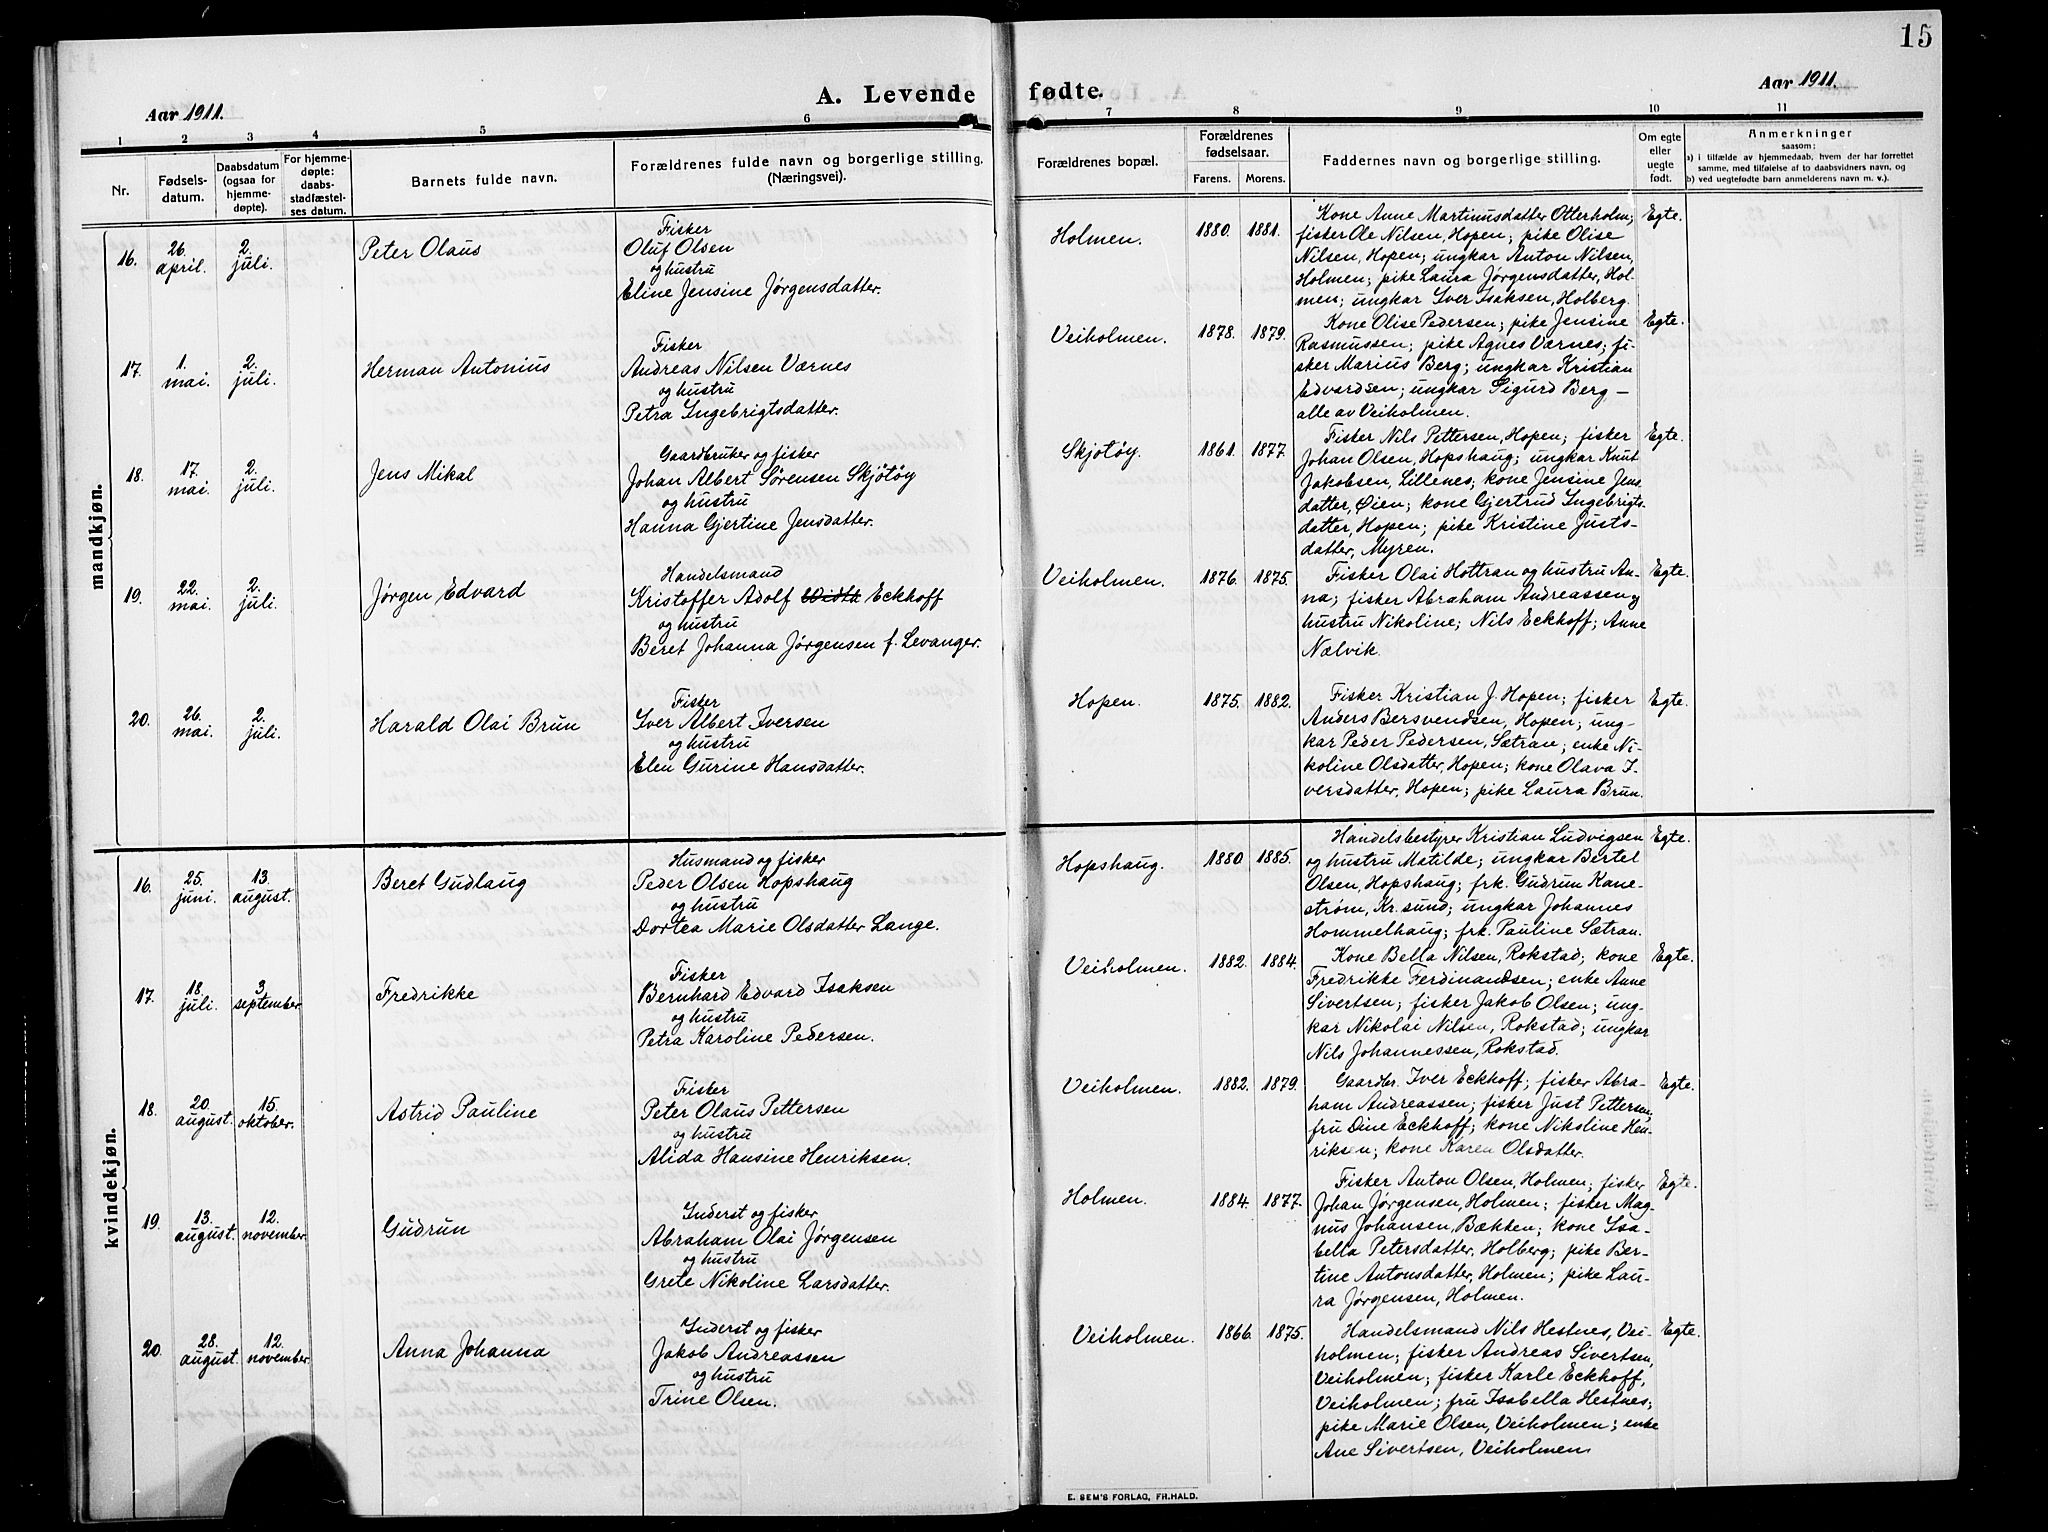 15
A. Levende fødte.
Aar 1911.
Aar 1911.
1 2 3 4 5 6 7 8 9 10 11
Nr.
Fødsels-
datum.
Daabsdatum
(ogsaa for
hjemme-
døpte).
For hjemme-
døpte:
daabs-
stadfæstel-
ses datum.
Barnets fulde navn.
Forældrenes fulde navn og borgerlige stilling.
(Næringsvei).
Forældrenes bopæl.
Forældrenes
fødselsaar.
Farens. Morens.
Faddernes navn og borgerlige stilling.
Om egte
eller
uegte
født.
Anmerkninger
saasom:
a) i tilfælde av hjemmedaab, hvem der har forrettet
samme, med tilføielse af to daabsvidners navn, og
b) ved uegtefødte barn anmelderens navn m. v.).
mandkjøn.
16.
26.
april.
2.
juli.
Peter Olaus
Fisker
Oluf Olsen
og hustru
Eline Jensine Jørgensdatter.
Holmen.
1880. 1881.
Kone Anne Martinusdatter Otterholm;
fisker Ole Nilsen, Hopen; pike Olise
Nilsen, Hopen; ungkar Anton Nilsen,
Holmen; pike Laura Jørgensdatter, Hol-
men; ungkar Iver Isaksen, Holberg.
Egte.
17.
1.
mai.
2.
juli.
Herman Antonius
Fisker
Andreas Nilsen Værnes
og hustru
Petra Ingebrigtsdatter.
Veiholmen.
1878. 1879.
Kone Olise Pedersen; pike Jensine
Rasmussen; pike Agnes Værnes; fi-
sker Marius Berg; ungkar Kristian
Edvardsen; ungkar Sigurd Berg —
alle av Veiholmen.
Egte.
18.
17.
mai.
2.
juli.
Jens Mikal
Gaardbruker og fisker
Johan Albert Sørensen Skjøtøy
og hustru
Hanna Gjertine Jensdatter.
Skjøtøy.
1861. 1877.
Fisker Nils Pettersen, Hopen; fisker
Johan Olsen, Hopshaug; ungkar Knut
Jakobsen, Lillenes; kone Jensine Jens-
datter, Øien; kone Gjertrud Ingebrigts-
datter, Hopen; pike Kristine Justs-
datter, Myren.
Egte.
19.
22.
mai.
2.
juli.
Jørgen Edvard
Handelsmand
Kristoffer Adolf Eckhoff
og hustru
Beret Johanna Jørgensen f. Levanger.
Veiholmen.
1876. 1875.
Fisker Olai Hottran og hustru An-
na; fisker Abraham Andreassen og
hustru Nikoline; Nils Eckhoff; Anne
Nælvik.
Egte.
20.
26.
mai.
2.
juli.
Harald Olai Brun
Fisker
Iver Albert Iversen
og hustru
Elen Gurine Hansdatter.
Hopen.
1875. 1882.
Fisker Kristian J. Hopen; fisker
Anders Bersvendsen, Hopen; ung-
kar Peder Pedersen, Sætran; enke Ni-
koline Olsdatter, Hopen; kone Olava I-
versdatter, Hopen; pike Laura Brun.
Egte.
kvindekjøn.
16.
25.
juni.
13.
august.
Beret Gudlaug
Husmand og fisker
Peder Olsen Hopshaug
og hustru
Dortea Marie Olsdatter Lange.
Hopshaug.
1880. 1885.
Handelsbestyrer Kristian Ludvigsen
og hustru Matilde; ungkar Bertel
Olsen, Hopshaug; frk. Gudrun Kane-
strøm, Kr.sund; ungkar Johannes
Hommelhaug; frk. Pauline Sætran.
Egte.
17.
18.
juli.
3.
september.
Fredrikke
Fisker
Bernhard Edvard Isaksen
og hustru
Petra Karoline Pedersen.
Veiholmen.
1882. 1884.
Kone Bella Nilsen, Rokstad; kone
Fredrikke Ferdinandsen; enke Anne
Sivertsen; fisker Jakob Olsen; ung-
kar Nikolai Nilsen, Rokstad; ungkar
Nils Johannessen, Rokstad.
Egte.
18.
20.
august.
15.
oktober.
Astrid Pauline
Fisker
Peter Olaus Pettersen
og hustru
Alida Hansine Henriksen.
Veiholmen.
1882. 1879.
Gaardbr. Iver Eckhoff; fisker Abra-
ham Andreassen; fisker Just Pettersen;
fru Dine Eckhoff; kone Nikoline Hen-
riksen; kone Karen Olsdatter.
Egte.
19.
13.
august.
12.
november.
Gudrun
Inderst og fisker
Abraham Olai Jørgensen
og hustru
Grete Nikoline Larsdatter.
Holmen.
1884. 1877.
Fisker Anton Olsen, Holmen; fisker
Johan Jørgensen, Holmen; fisker Mag-
nus Johansen, Bækken; kone Isa-
bella Petersdatter, Holberg; pike Ber-
tine Antonsdatter, Holmen; pike Lau-
ra Jørgensen, Holmen.
Egte.
20.
28.
august.
12.
november.
Anna Johanna
Inderst og fisker
Jakob Andreassen
og hustru
Trine Olsen.
Veiholmen.
1866. 1875.
Handelsmand Nils Hestnes, Vei-
holmen; fisker Andreas Sivertsen,
Veiholmen; fisker Karle Eckhoff,
Veiholmen; fru Isabella Hestnes;
pike Marie Olsen, Veiholmen; enke
Ane Sivertsen, Veiholmen.
Egte.
E. SEM'S FORLAG, FR.HALD.